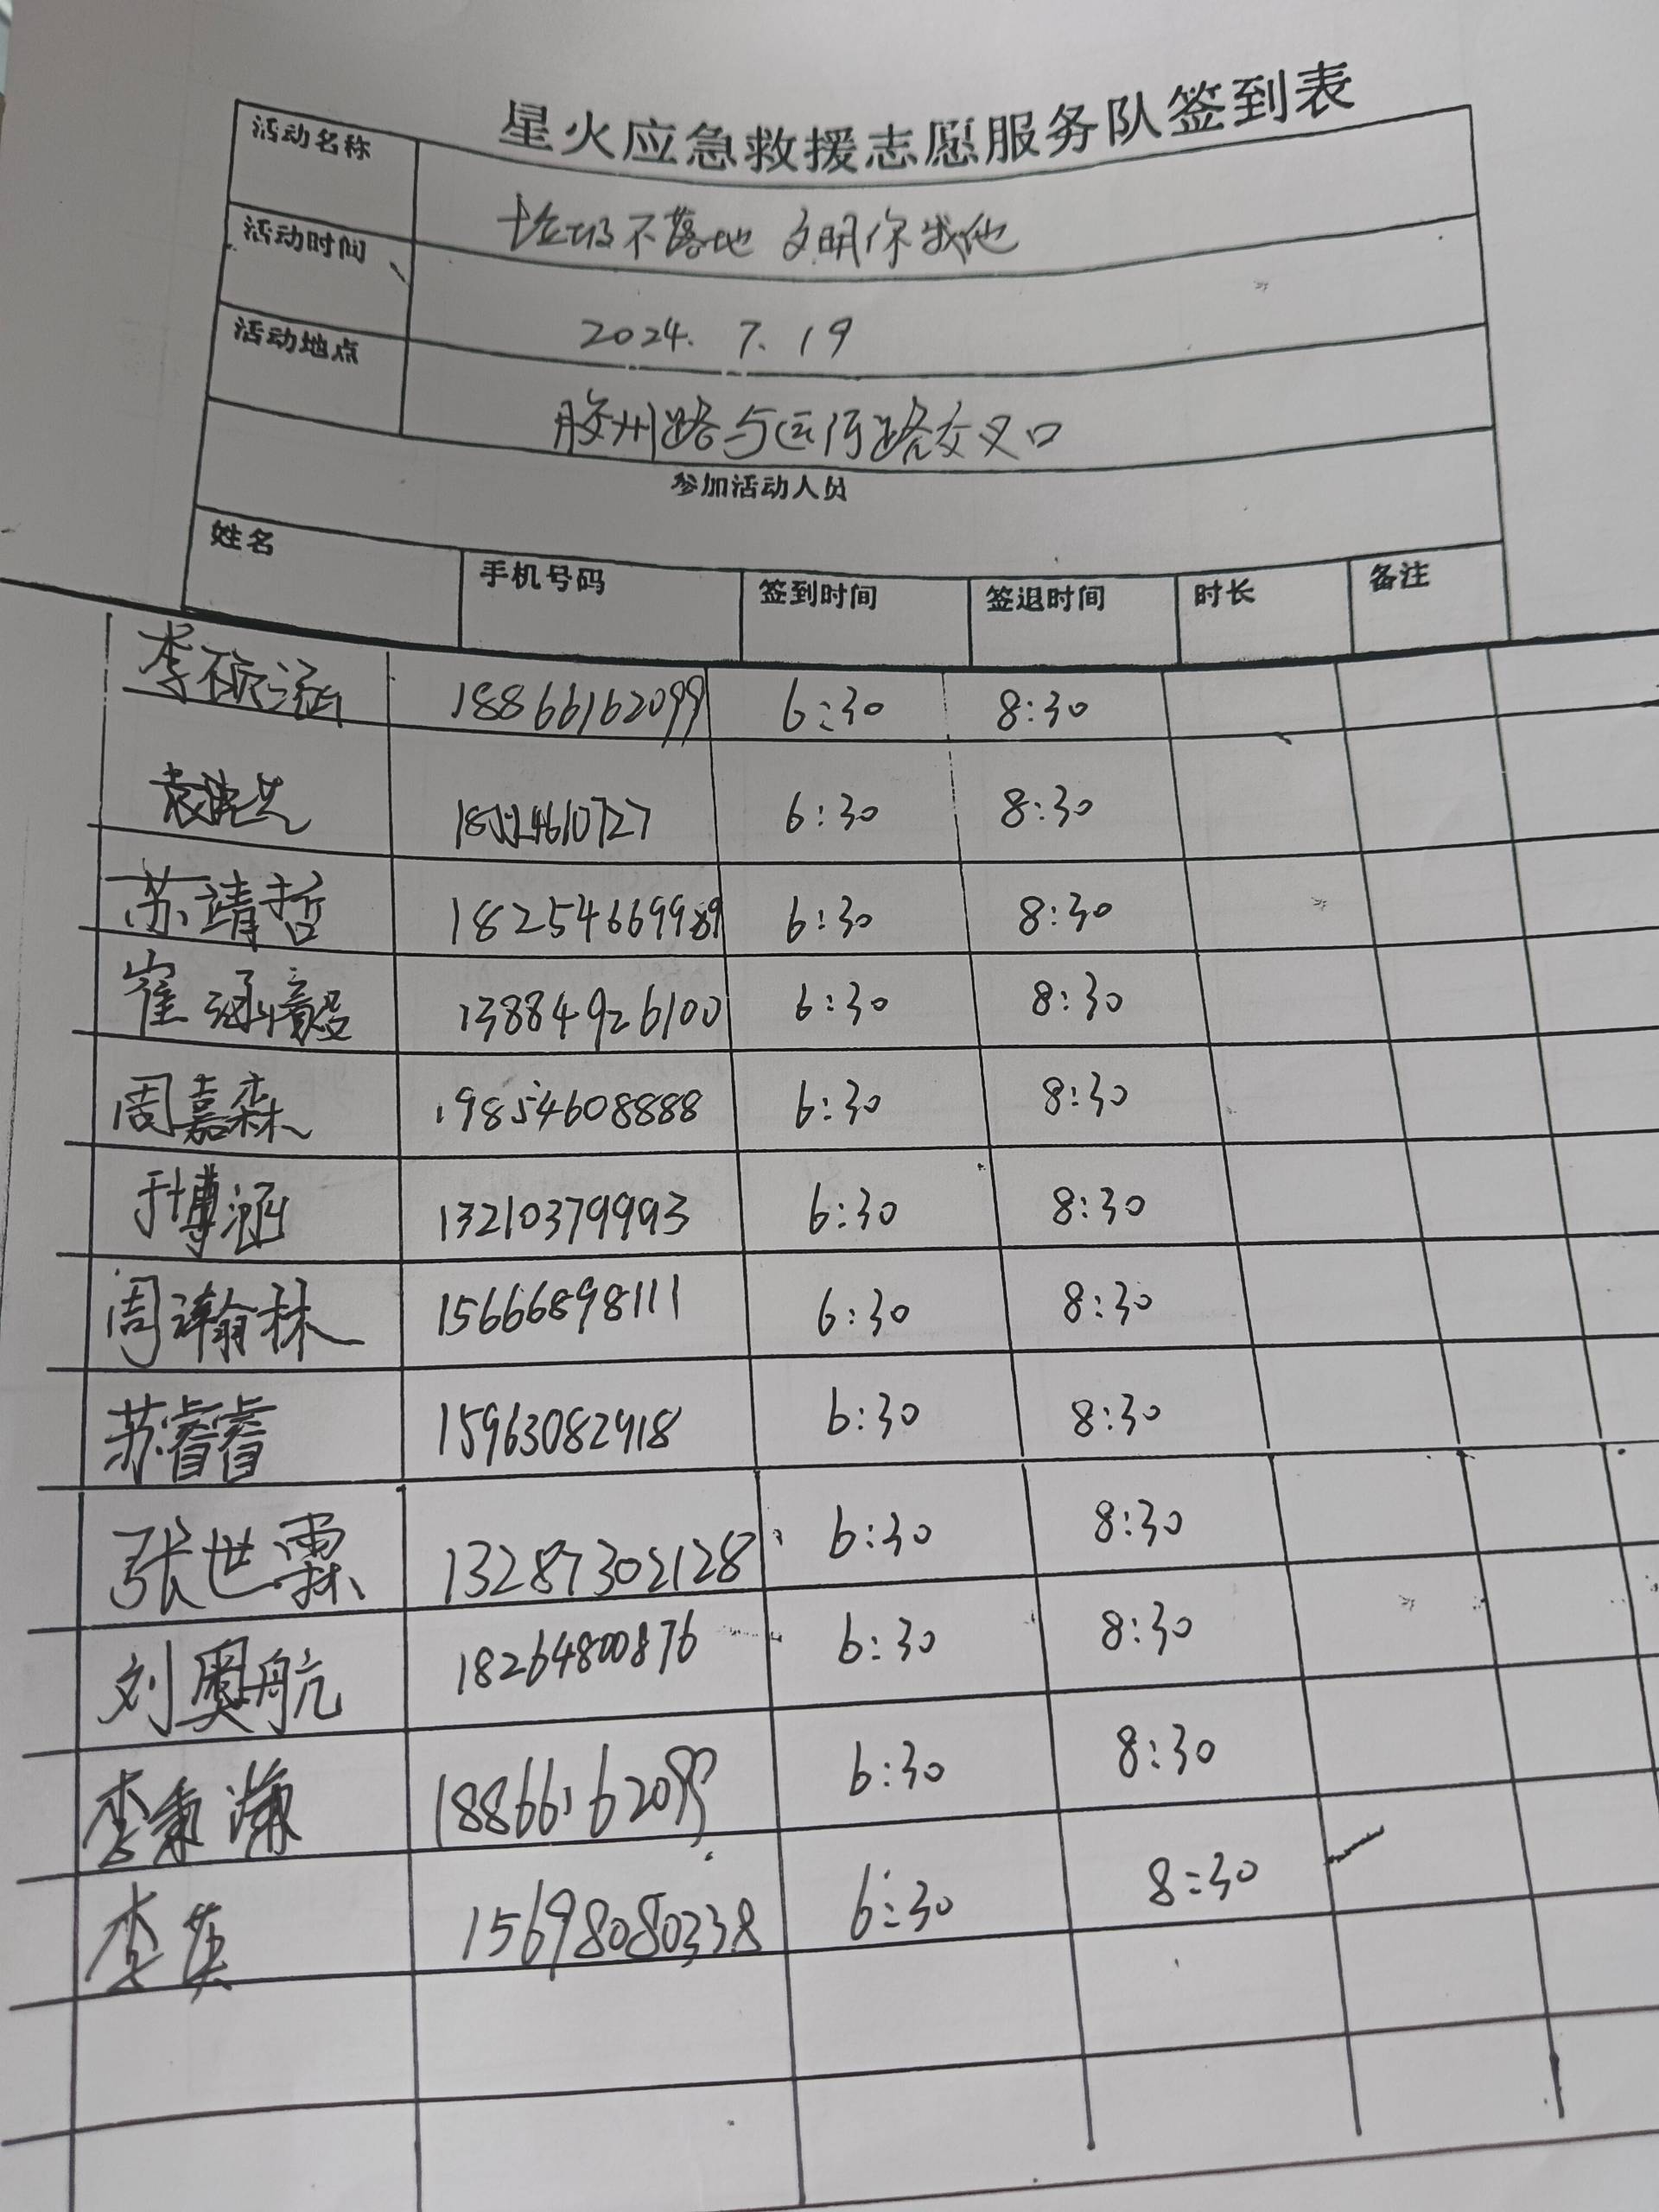 星火应急救援志愿服务队签到表
活动名称 垃圾不落地 文明你我他
活动时间 2024.7.19
活动地点 胶州路与运河路交叉口
参加活动人员
姓名 手机号码 签到时间 签退时间 时长 备注
李硕涵 18866162099 6:30 8:30
6:30 8:30
苏靖哲 18254669989 6:30 8:30
崔涵 13884926100 6:30 8:30
周嘉森 19854608888 6:30 8:30
于博涵 13210379993 6:30 8:30
周瀚林 15666898111 6:30 8:30
苏睿睿 15963082918 6:30 8:30
张世霖 13287302128 6:30 8:30
刘奥航 18264800876 6:30 8:30
李秉 18866162099 6:30 8:30
李英 15698080338 6:30 8:30